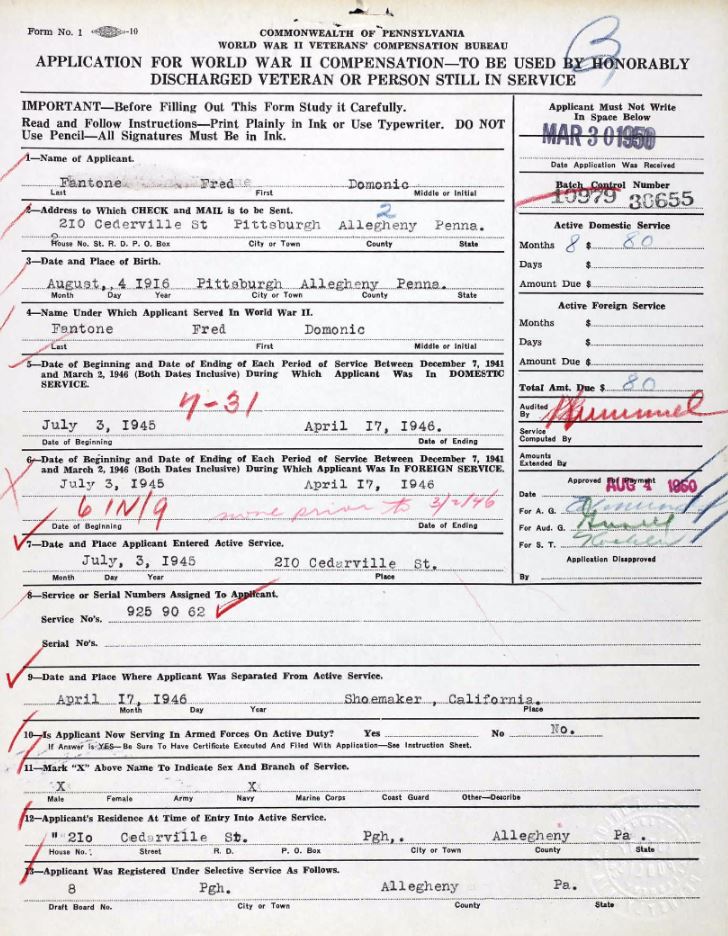 Form No. 1 10
3
COMMONWEALTH OF PENNSYLVANIA
WORLD WAR II VETERANS' COMPENSATION BUREAU
APPLICATION FOR WORLD WAR II COMPENSATION—TO BE USED BY HONORABLY
DISCHARGED VETERAN OR PERSON STILL IN SERVICE
IMPORTANT—Before Filling Out This Form Study it Carefully.
Read and Follow Instructions—Print Plainly in Ink or Use Typewriter. DO NOT
Use Pencil—All Signatures Must Be in Ink.
1—Name of Applicant.
Fantone Fred Domonic
Last First Middle or Initial
2—Address to Which CHECK and MAIL is to be Sent.
2
210 Cederville St Pittsburgh Allegheny Penna.
House No. St. R. D. P. O. Box City or Town County State
3—Date and Place of Birth.
August,, 4 1916 Pittsburgh Allegheny Penna.
Month Day Year City or Town County State
4—Name Under Which Applicant Served In World War II.
Fantone Fred Domonic
Last First Middle or Initial
5—Date of Beginning and Date of Ending of Each Period of Service Between December 7, 1941
and March 2, 1946 (Both Dates Inclusive) During Which Applicant Was In DOMESTIC
SERVICE.
7-31
July 3, 1945 April 17, 1946.
Date of Beginning Date of Ending
6—Date of Beginning and Date of Ending of Each Period of Service Between December 7, 1941
and March 2, 1946 (Both Dates Inclusive) During Which Applicant Was In FOREIGN SERVICE.
July 3, 1945 April 17, 1946
6 IN/9 none prior to 3/2/46
Date of Beginning Date of Ending
7—Date and Place Applicant Entered Active Service.
July, 3, 1945 210 Cedarville St.
Month Day Year Place
8—Service or Serial Numbers Assigned To Applicant.
Service No's. 925 90 62
Serial No's.
9—Date and Place Where Applicant Was Separated From Active Service.
April 17, 1946 Shoemaker , California.
Month Day Year Place
10—Is Applicant Now Serving In Armed Forces On Active Duty? Yes No No.
If Answer is YES—Be Sure To Have Certificate Executed And Filed With Application—See Instruction Sheet.
11—Mark "X" Above Name To Indicate Sex And Branch of Service.
X X
Male Female Army Navy Marine Corps Coast Guard Other—Describe
12—Applicant's Residence At Time of Entry Into Active Service.
" 210 Cedarville St. Pgh,. Allegheny Pa .
House No. Street R. D. P. O. Box City or Town County State
13—Applicant Was Registered Under Selective Service As Follows.
8 Pgh. Allegheny Pa.
Draft Board No. City or Town County State
Applicant Must Not Write
In Space Below
MAR 30 1950
Date Application Was Received
Batch Control Number
10979 30655
Active Domestic Service
Months 8 $ 80
Days $
Amount Due $
Active Foreign Service
Months $
Days $
Amount Due $
Total Amt. Due $ 80
Audited
By
Service
Computed By
Amounts
Extended By
Approved For Payment
Date AUG 4 1950
For A. G.
For Aud. G.
For S. T.
Application Disapproved
By